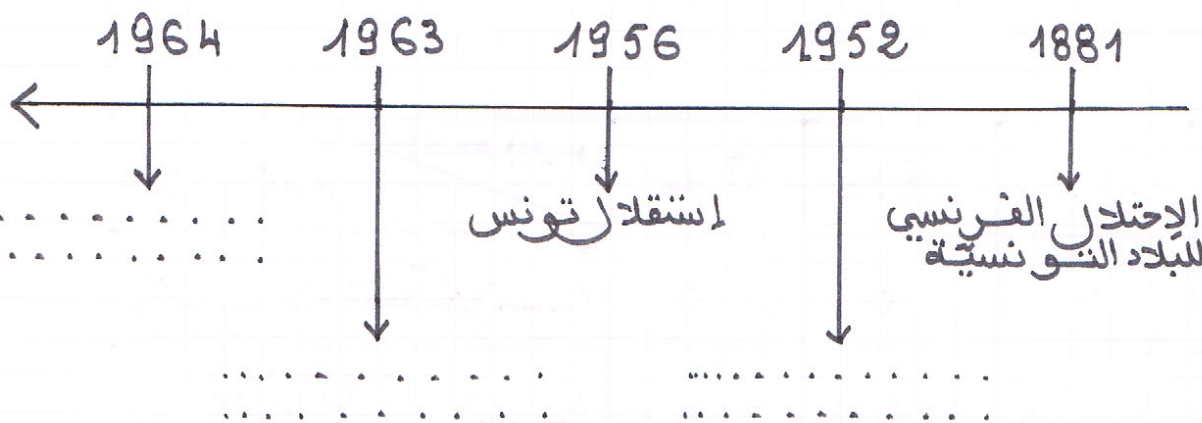 1964 1963 1956 1952 1881
إستقلال تونس
الإحتلال الفرنسي
للبلاد التونسيّة